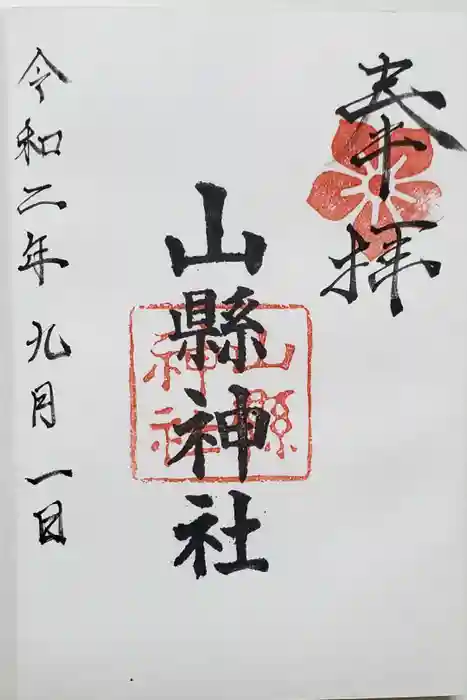 奉拝
山縣神社
山縣
神社
令和二年九月一日